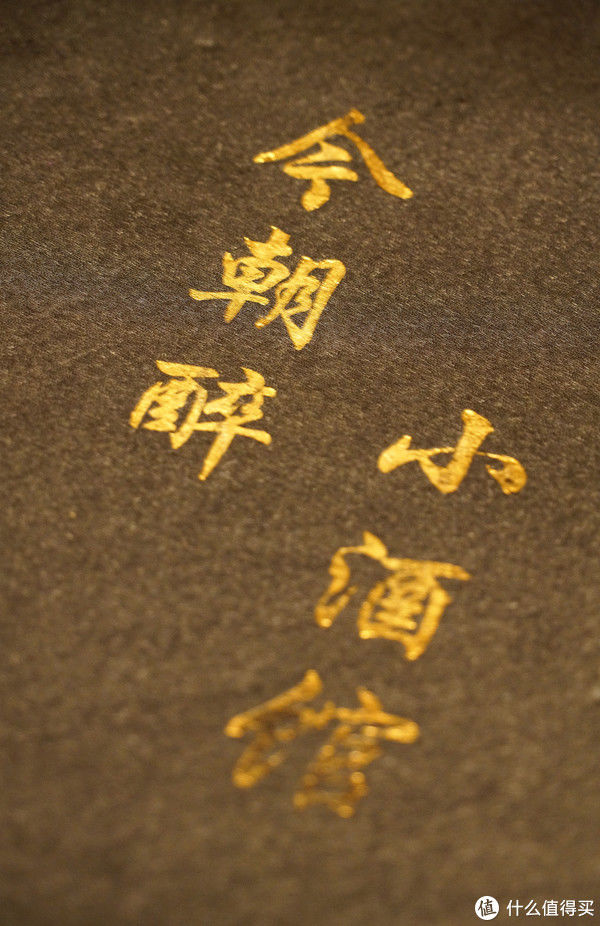 今朝醉
小酒馆
值 什么值得买